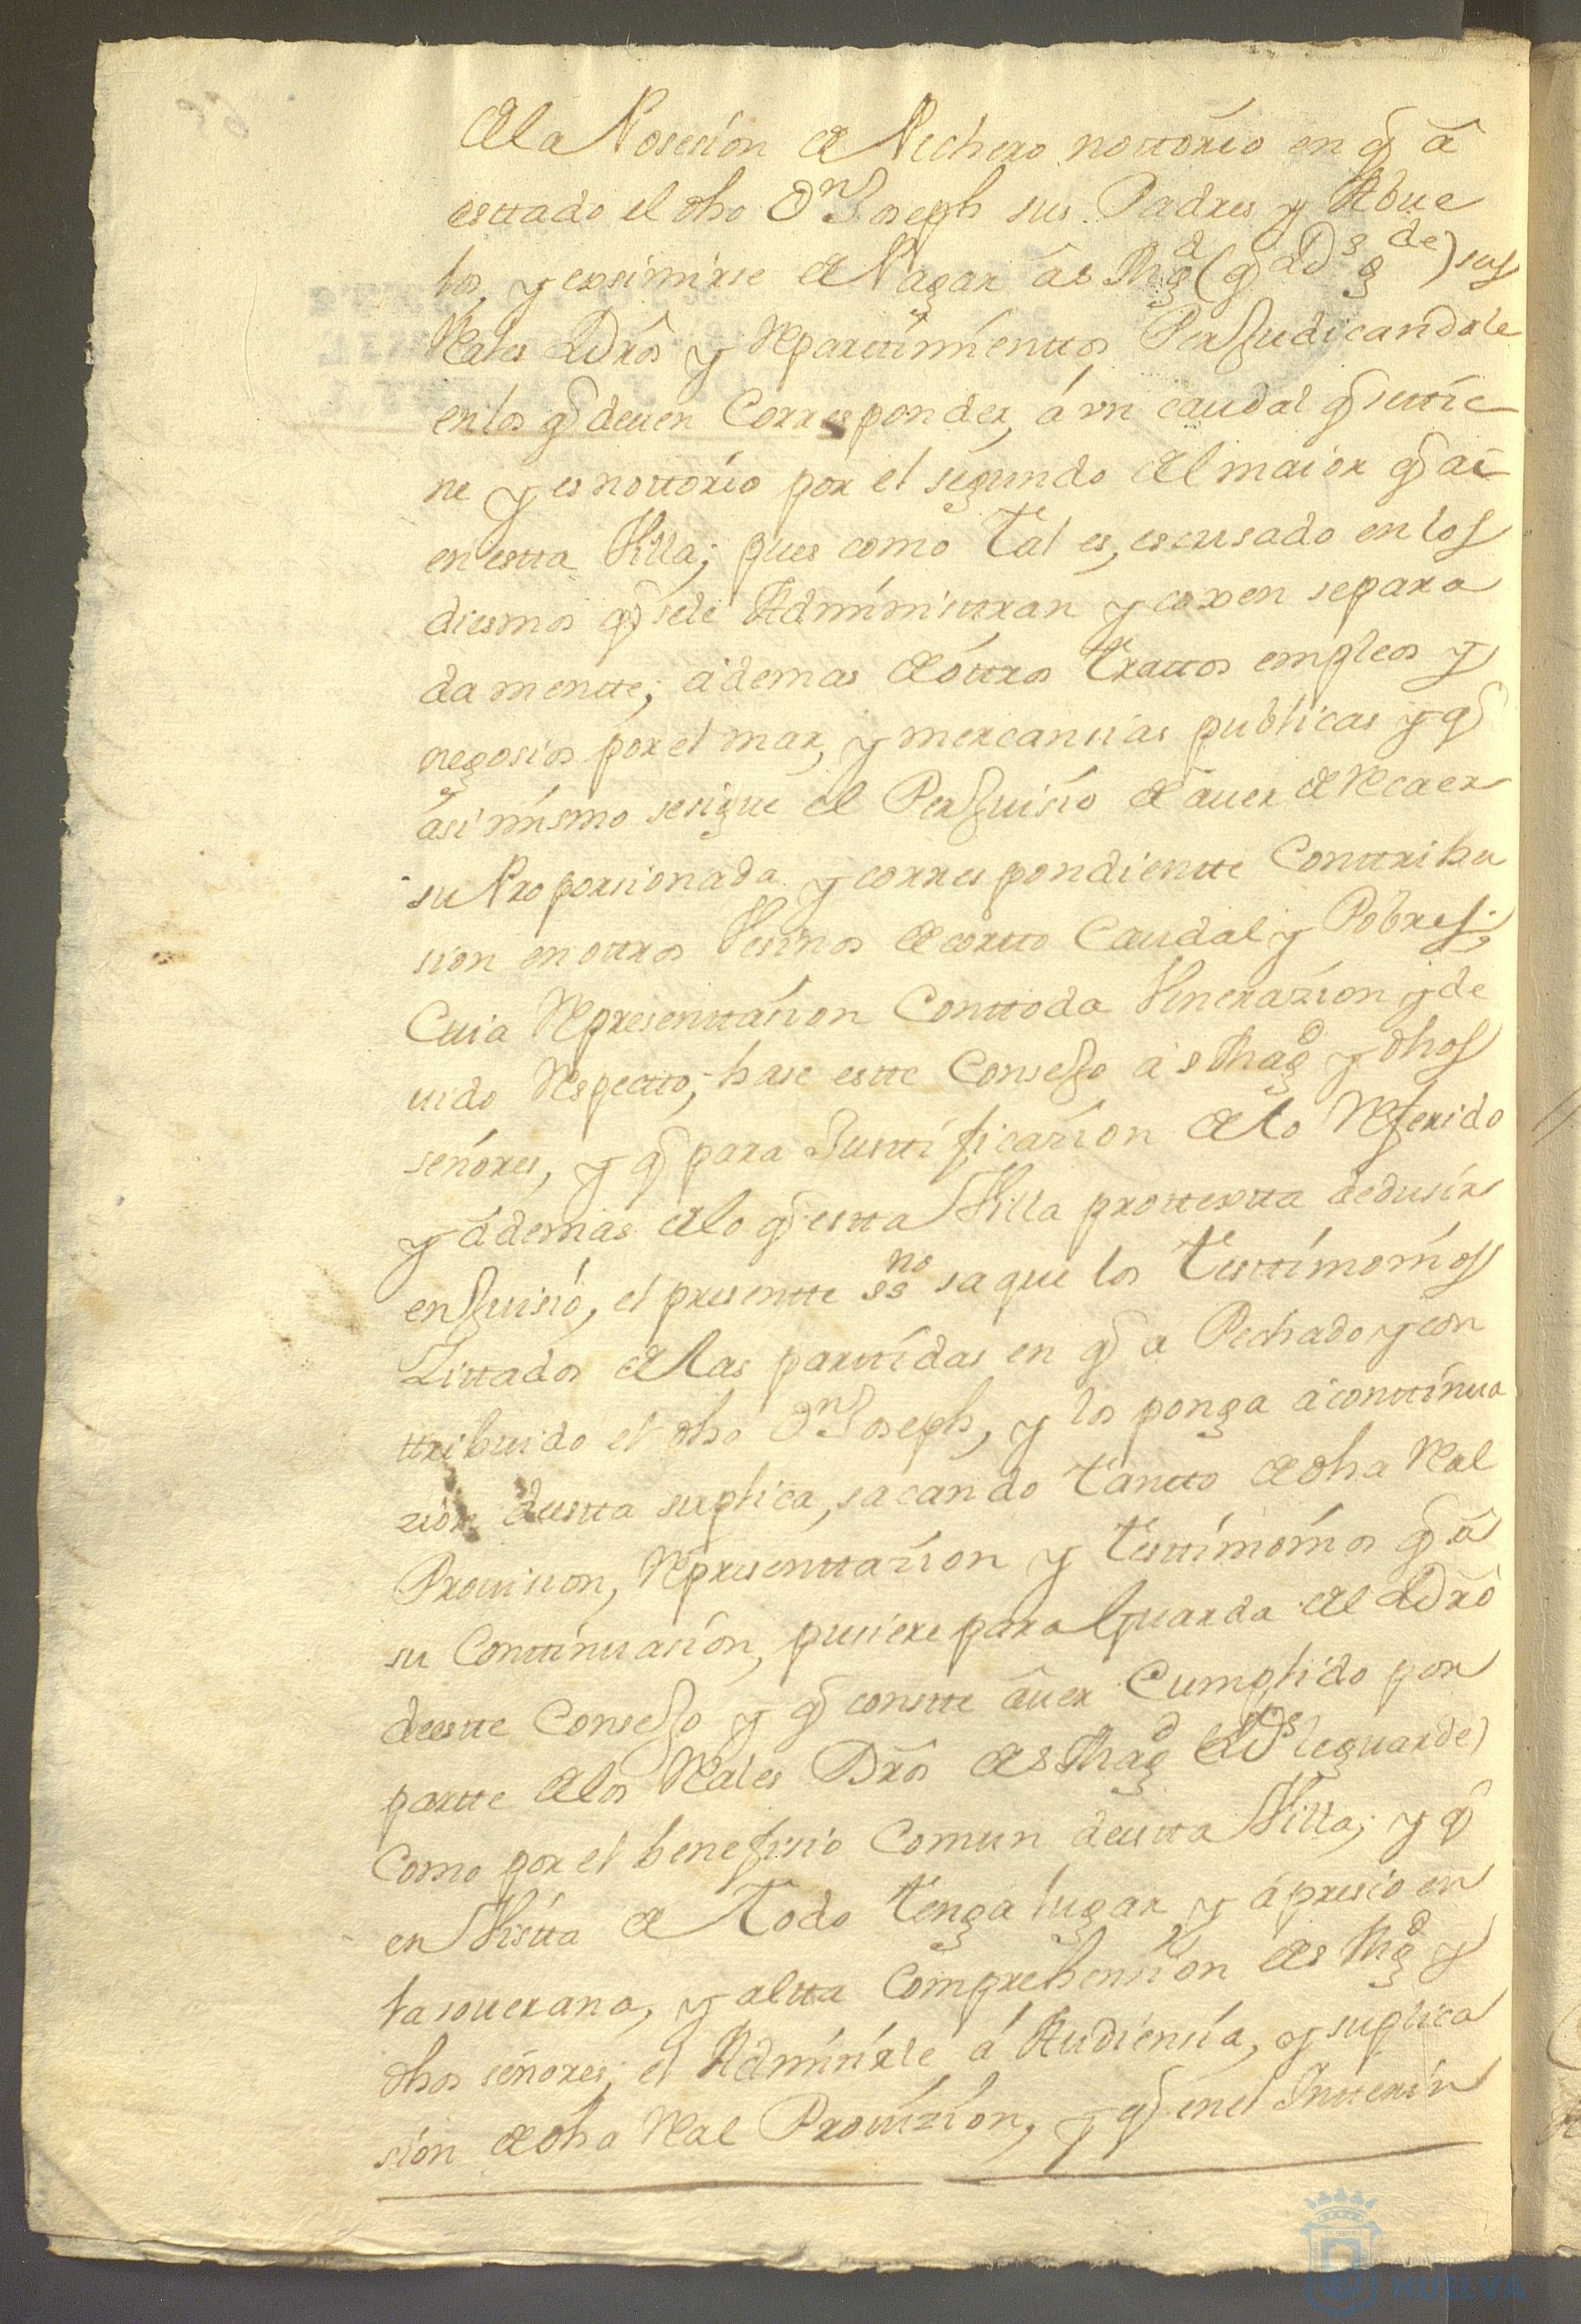 de la Posesión de Pechero nottorio en q̃ â
esttado el dho Dn Joseph sus Padres y Abue
los, y exsimirse de Pagar â s Mgd (q Ds gde) sus
Rales Dr̃os y Repartimienttos, Perjudicandole
en los q̃ deuen Corresponder, á vn caudal q̃ settie
ne y es nottorio por el segundo del maior q̃ ai
en estta Villa; pues como Tal es, escusado en los
diesmos q̃ sele Administtran y coxen separa
damentte; ádemas de ottros Trattos empleos y
negosios por el mar, y mercansias publicas y q̃
ási mismo sesigue el Perjuisio de auer de Recaer
su Proporsionada y correspondientte Conttribu
sion en ottros Vesinos de cortto Caudal y Pobres;
Cuia Representtasion Conttoda Venerazion y de
uido Respectto; hase estte Consejo á s Magd y dhos
señores, y q̃ para Justtificazion de lo Referido
y ádemas de lo q̃ estta Villa prottextta dedusir
en Juisio, el presentte ssno saque los Testtimonios
Zittados de las parttidas en q̃ a Pechado y con
ttribuido el dho Dn Joseph, y los ponga á conttinua
zión deestta suplica, sacando Tantto de dha Ral
Prouision, Representtazion y Testtimonios q̃ â
su Conttinuasión, pusiere para Guarda del Dr̃o
deestte Consejo y q̃ constte âuer Cumplido por
partte de los Rales Dr̃os de s Magd (q Ds leguarde)
Como por el benefisio Comun deestta Villa; y q̃
en Visstta de Todo Tenga lugar y ápresio en
la souerana, y altta Comprehension de s Mgd y
dhos señores; el Admitirle á Audiensia, y suplica
sión de dha Ral Prouizion, y q̃ en el Intterin
HUELVA